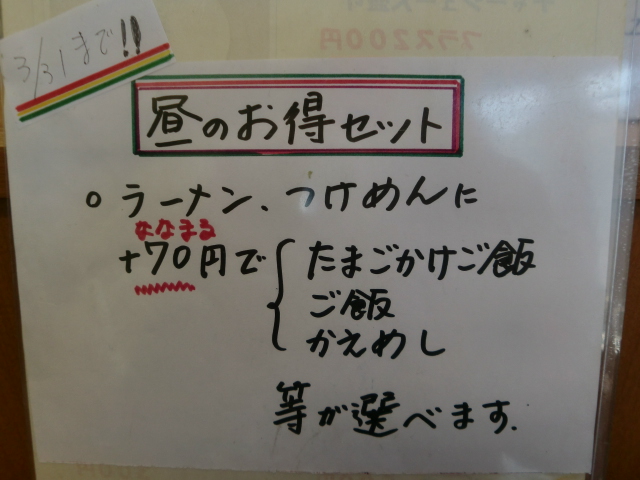 3/31まで!!
プラス200円
昼のお得セット
○ラーメン、つけめんに
ななまる
+70円で
たまごかけご飯
ご飯
かえめし
等が選べます.